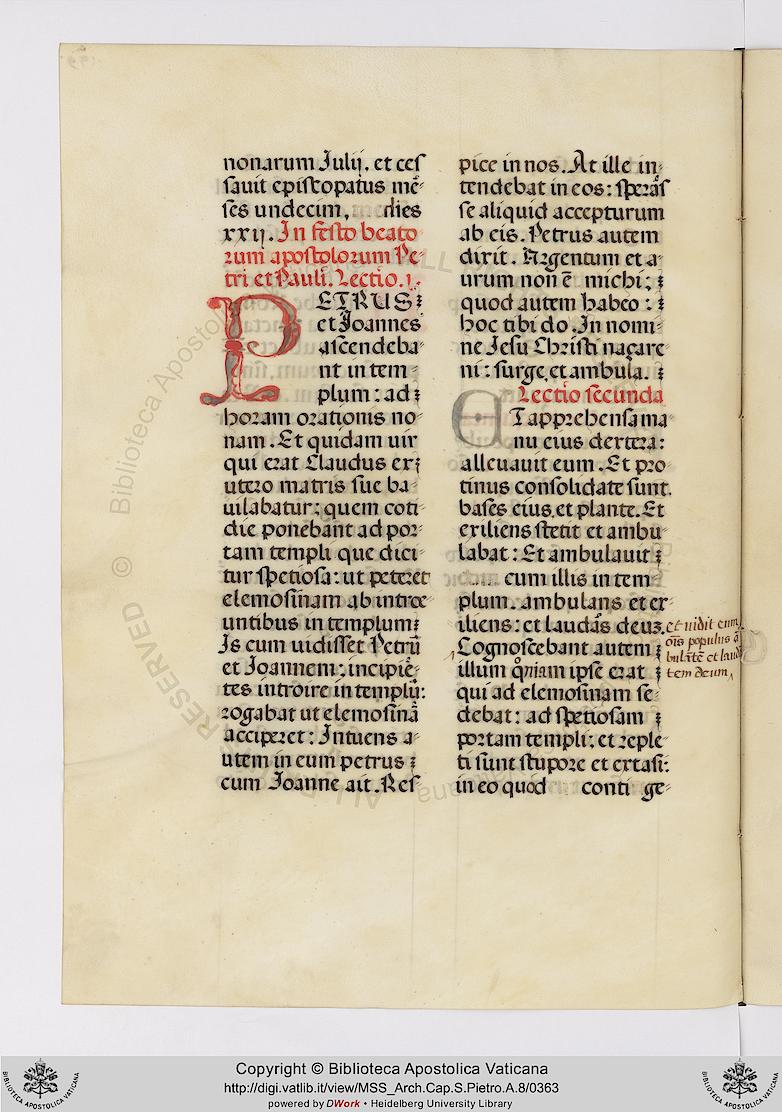 nonarum Julij. et ces
sauit episcopatus mē-
ses undecim, dies
xxij. In festo beato
rum apostolorum Pe-
tri et Pauli. Lectio .i.
PETRUS
et Joannes
ascendeba-
nt in tem-
plum: ad
horam orationis no-
nam. Et quidam uir
qui erat Claudus ex
utero matris sue ba-
iulabatur: quem coti-
die ponebant ad por-
tam templi que dici-
tur spetiosa: ut peteret
elemosinam ab introe-
untibus in templum:
Is cum uidisset Petrū
et Joannem: incipiē-
tes introire in templū:
rogabat ut elemosinā
acciperet: Intuens a-
utem in eum petrus
cum Joanne ait. Res-
pice in nos. At ille in-
tendebat in eos: sperās
se aliquid accepturum
ab eis. Petrus autem
dixit. Argentum et a-
urum non ē michi;
quod autem habeo:
hoc tibi do. In nomi-
ne Jesu Christi naçare-
ni: surge et ambula.
Lectio secunda
ET apprehensa ma
nu eius dextera:
alleuauit eum. Et pro-
tinus consolidate sunt
bases eius, et plante. Et
exiliens stetit et ambu-
labat: Et ambulauit
cum illis in tem-
plum. ambulans et ex-
iliens: et laudās deuz.
Cognoscebant autem
illum qm̄niam ipse erat
qui ad elemosinam se-
debat: ad spetiosam
portam templi: et reple-
ti sunt stupore et extasi:
in eo quod conti ge-
et uidit eum
oīs populus ā
bulātē et laudā
tem deum
© Biblioteca Apostolica Vaticana
ALL RIGHTS RESERVED
Copyright © Biblioteca Apostolica Vaticana
http://digi.vatlib.it/view/MSS_Arch.Cap.S.Pietro.A.8/0363
powered by DWork • Heidelberg University Library
BIBLIOTECA APOSTOLICA VATICANA
BIBLIOTECA APOSTOLICA VATICANA